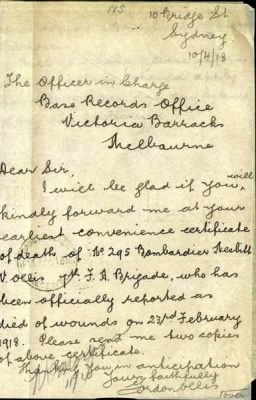 10 Bridge St
Sydney
10/4/18
The Officer in Charge
Base Records Office
Victoria Barracks
Melbourne
Dear Sir,
I will be glad if you will
kindly forward me at your
earliest convenience certificate
of death of No 295 Bombardier Nesbitt
V. Ollis 7th F. A. Brigade, who has
been officially reported as
died of wounds on 23rd February
1918. Please send me two copies
of above certificate.
Thanking you in anticipation
Yours faithfully
Gordon Ollis
over